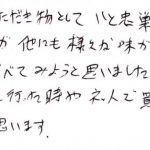 ただき物として 八と忠巣
が 他にも様々が味が
べてみようと思いました
行った時やネ人で買
思います.